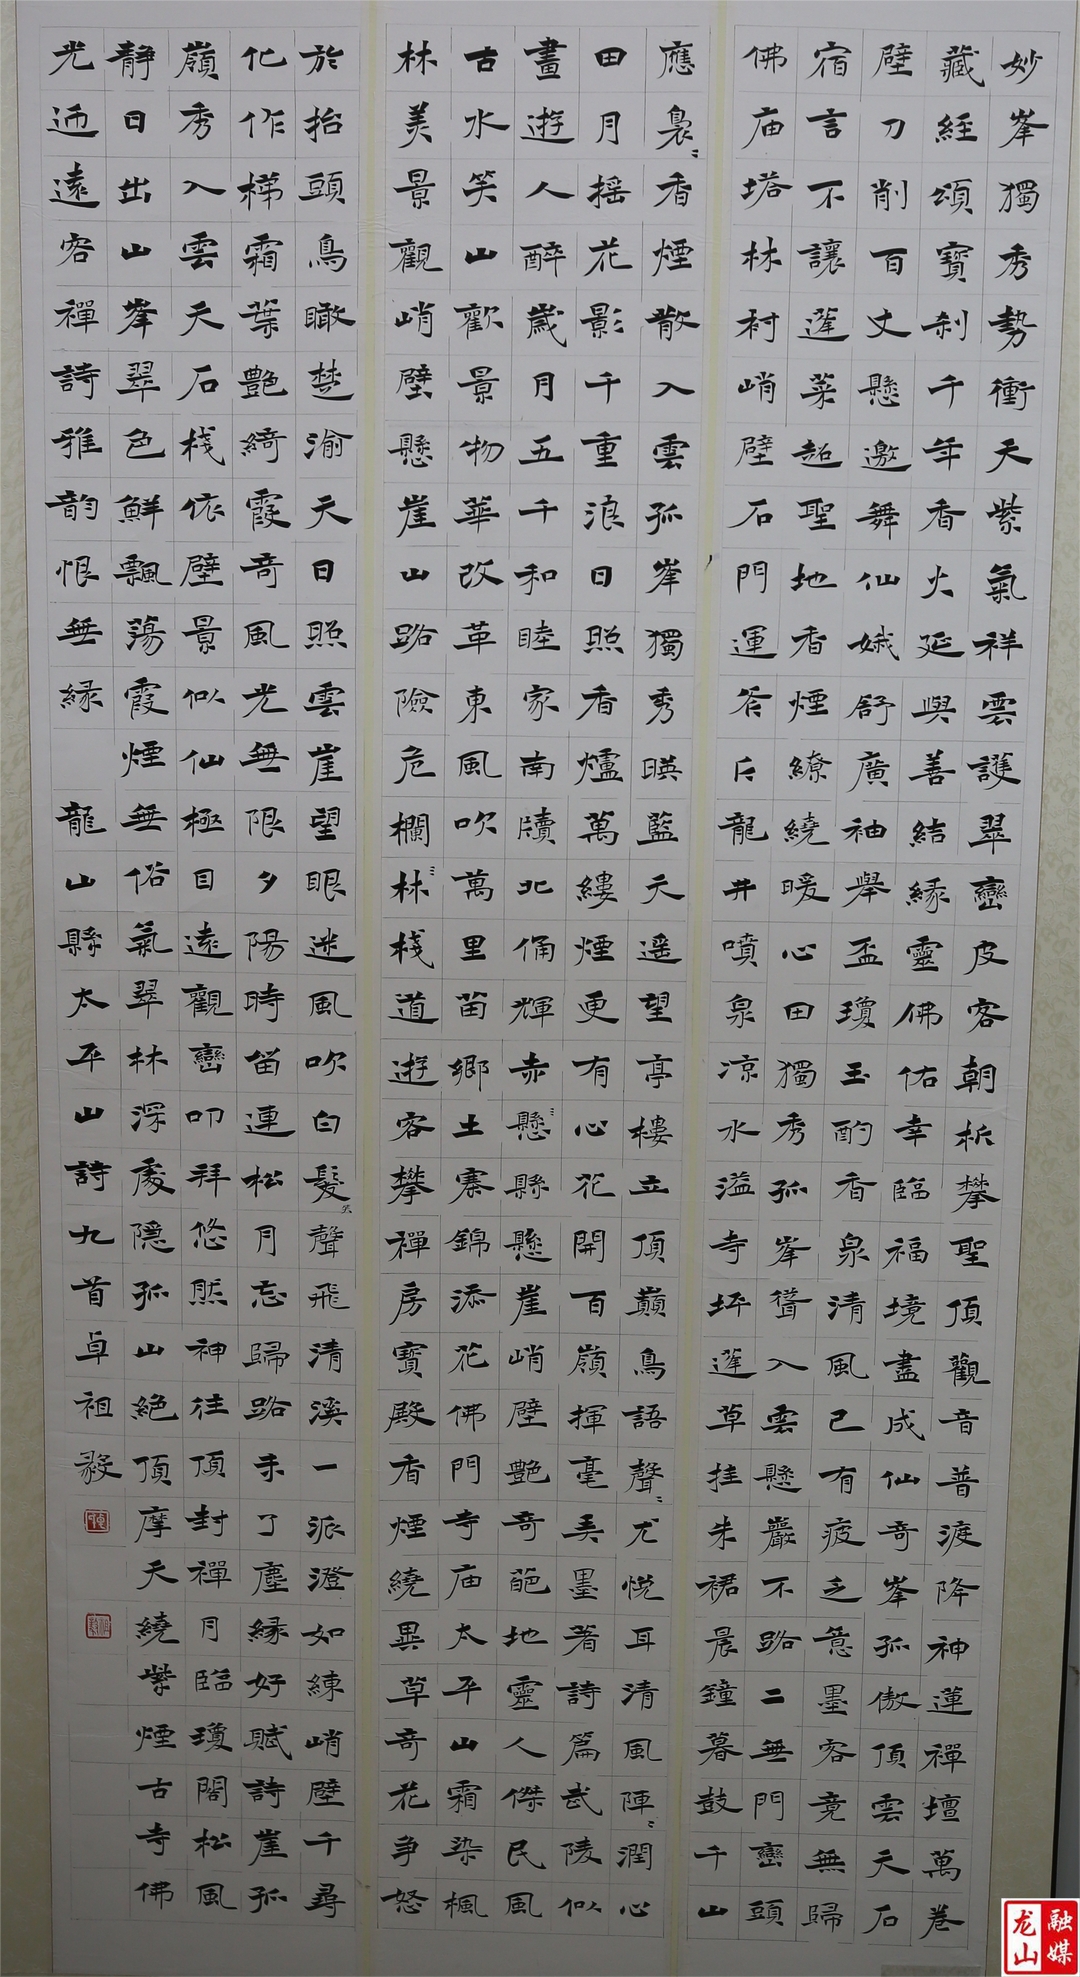 妙峯獨秀勢衝天紫氣祥雲護翠巒皮客朝析攀聖頂觀音普渡降神蓮禪壇萬卷
藏經頌寶刹千年香火延與善結緣靈佛佑幸臨福境盡成仙奇峯孤傲頂雲天石
壁刀削百丈懸邀舞仙娥舒廣袖舉盃瓊玉酌香泉清風已有疲乏意墨客竟無歸
宿言不讓蓬萊超聖地香煙繚繞暖心田獨秀孤峯聳入雲懸巖不路二無門巒頭
佛庙塔林村峭壁石門運斧斤龍井噴泉涼水溢寺坪蓬草挂朱裙晨鐘暮鼓千山
應裊〻香煙散入雲孤峯獨秀暎藍天遥望亭樓立頂巔鳥語聲〻尤悦耳清風陣〻潤心
田月摇花影千重浪日照香爐萬縷煙更有心花開百嶺揮毫美墨著詩篇武陵似
畫遊人醉歲月五千和睦家南牘北俑輝赤懸縣懸崖峭壁艷奇葩地靈人傑民風
古水笑山歡景物華改革東風吹萬里苗鄉土寨錦添花佛門寺庙太平山霜染楓
林美景觀峭壁懸崖山路險危欄林棧道遊客攀禪房寶殿香煙繞異草奇花争怒
於抬頭鳥瞰楚渝天日照雲崖望眼迷風吹白髮聲飛清溪一派澄如練峭壁千尋
化作梯霜葉艷綺霞奇風光無限夕陽時苗連松月忘歸路未了塵緣好賦詩崖孤
嶺秀入雲天石棧依壁景似仙極目遠觀巒叩拜悠然神往頂封禪月臨瓊閣松風
静日出山峯翠色鮮飄蕩霞煙無俗氣翠林深處隱孤山絶頂摩天繞紫煙古寺佛
光迊遠客禪詩雅韵恨無緣 龍山縣太平山詩九首卓祖毅
龙山融媒